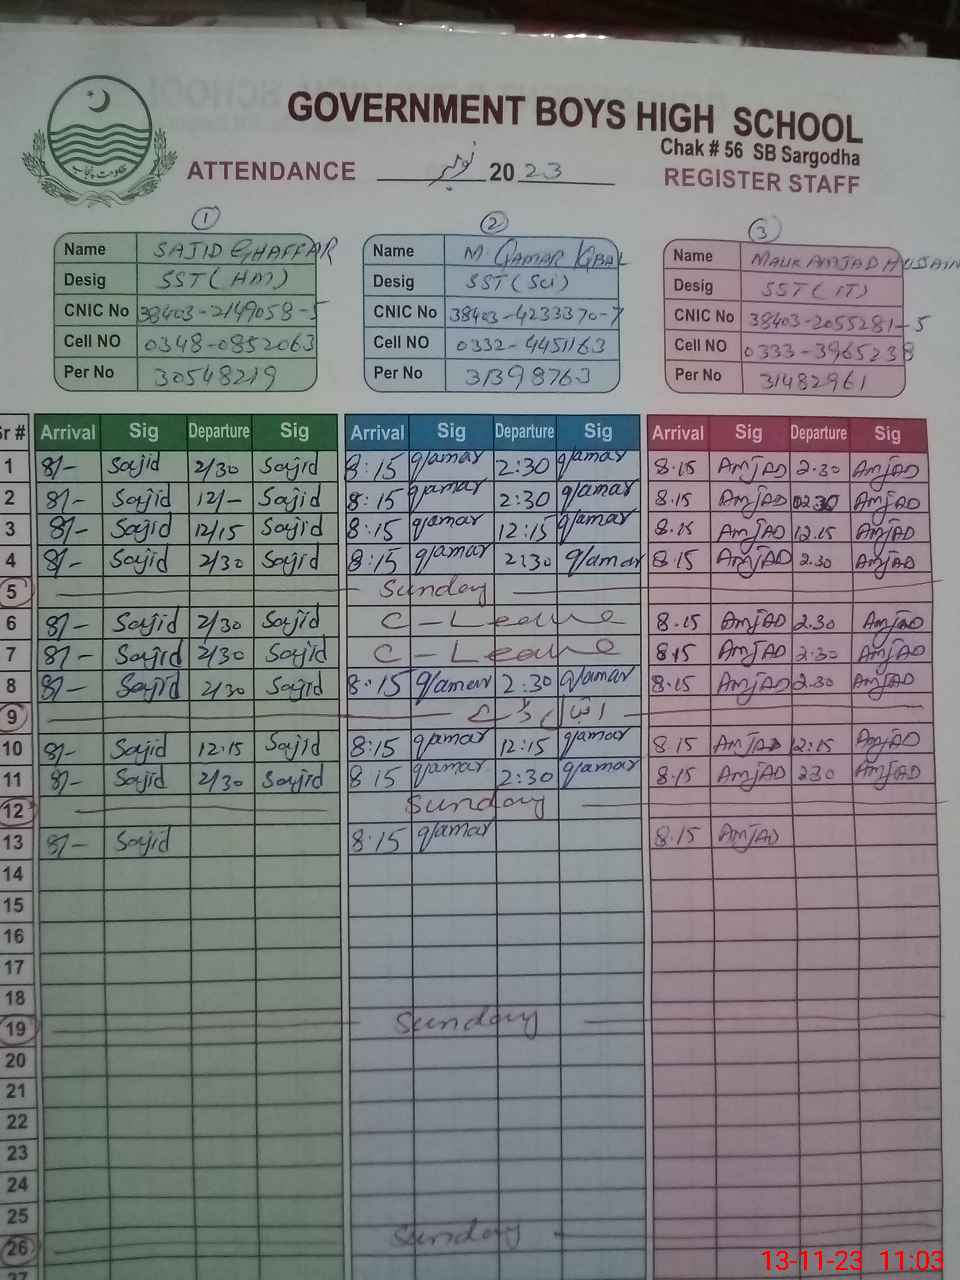 GOVERNMENT BOYS HIGH SCHOOL
Chak # 56 SB Sargodha
ATTENDANCE نومبر 20 23 REGISTER STAFF
حکومت پنجاب
1 2 3
Name SAJID GHAFFAR Name M. QAMAR IQBAL Name MALIK AMJAD HUSSAIN
Desig SST (HM) Desig SST (Sci) Desig SST (IT)
CNIC No 38403-2149058-5 CNIC No 38403-4233370-7 CNIC No 38403-2055281-5
Cell NO 0348-0852063 Cell NO 0332-4451163 Cell NO 0333-3965238
Per No 30548219 Per No 31398763 Per No 31482961
Sr # Arrival Sig Departure Sig Arrival Sig Departure Sig Arrival Sig Departure Sig
1 8/- Sajid 2/30 Sajid 8:15 qamar 2:30 qamar 8.15 AmJAD 2.30 AmJAD
2 8/- Sajid 12/- Sajid 8:15 qamar 2:30 qamar 8.15 AmJAD 02.30 AmJAD
3 8/- Sajid 12/15 Sajid 8:15 qamar 12:15 qamar 8.15 AmJAD 12.15 AmJAD
4 8/- Sajid 2/30 Sajid 8:15 qamar 2:30 qamar 8.15 AmJAD 2.30 AmJAD
5 Sunday
6 8/- Sajid 2/30 Sajid C-Leave 8.15 AmJAD 2.30 AmJAD
7 8/- Sajid 2/30 Sajid C-Leave 8.15 AmJAD 2.30 AmJAD
8 8/- Sajid 2/30 Sajid 8:15 qamar 2:30 qamar 8.15 AmJAD 2.30 AmJAD
9 اقبال ڈے
10 8/- Sajid 12.15 Sajid 8:15 qamar 12:15 qamar 8.15 AmJAD 12.15 AmJAD
11 8/- Sajid 2/30 Sajid 8 15 qamar 2:30 qamar 8.15 AmJAD 230 AmJAD
12 Sunday
13 8/- Sajid 8.15 qamar 8.15 AmJAD
14
15
16
17
18
19 Sunday
20
21
22
23
24
25
26 Sunday
27
13-11-23 11:03